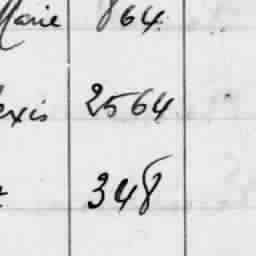 Marie 864
exis 2564
348